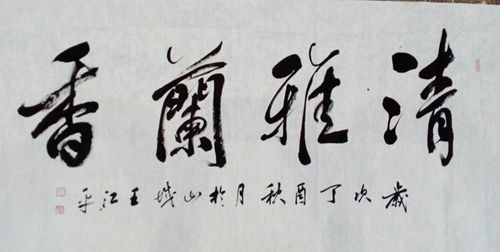 清雅蘭香
歲次丁酉秋月於山城王江平